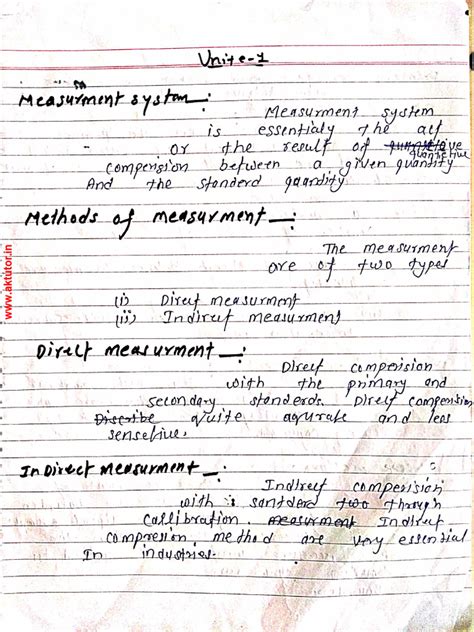 Unite-1
Measurment system :
Measurment system
is essentialy the act
or the result of quantetive
comperision between a given quantity
And the standerd quardity
Methods of measurment :
The measurment
are of two types
(i) Direct measurment
(ii) Indirect measurment
Direct measurment :
Direct comperision
with the primary and
secondary standerds. Direct comperision
Discribe quite aqurate and less
sensetive.
InDirect measurment :
Indirect comperision
with santderd two through
callibration. measurment Indirect
compression method are very essential
In industries.
www.aktutor.in